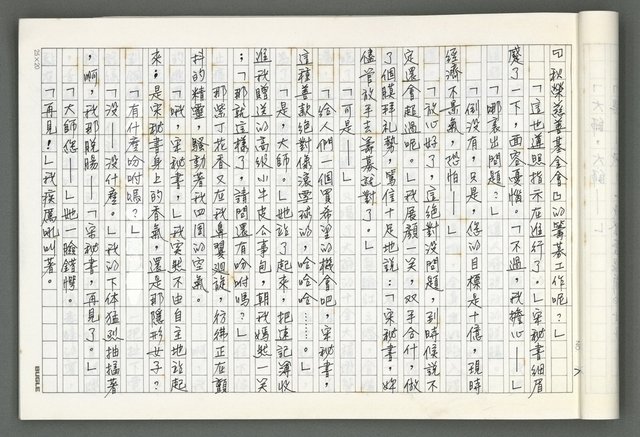 『秋榮慈善基金會』的籌募工作呢？」
「這也遵照指示在進行了。」宋秘書細眉
蹙了一下，面容憂惱。「不過，我擔心——」
「哪裏出問題？」
「倒沒有，只是，您的目標是十億，現時
經濟不景氣，恐怕——」
「放心好了，這絕對沒問題，到時候說不
定還會超過呢。」我展顏一笑，双手合什，做
了個膜拜礼勢，篤信十足地說：「宋秘書，妳
儘管放手去籌募就對了。」
「可是——」
「給人們一個買希望的機會吧，宋秘書，
這種善款絕對像滾雪球的，哈哈哈……。」
「是，大師。」她站了起來，把速記簿收
進我贈送的高級小牛皮公事包，期我嫣然一笑
「那就這樣了，請問還有吩咐嗎？」
那紫丁花香又在我鼻翼迴旋，彷彿正在顫
抖的精靈，騷動著我四周的空氣。
「哦，宋秘書，」我突然不由自主地站起
來：是宋秘書身上的香氣，還是那隱形女子？
「有什麼吩咐嗎？」
「沒——沒什麼。」我的下体猛烈抽搐著
，啊，我那脫腸——「宋秘書，再見了。」
「大師您——」她一臉錯愕。
「再見！」我疾厲吼叫著。
25×20
BUGLE